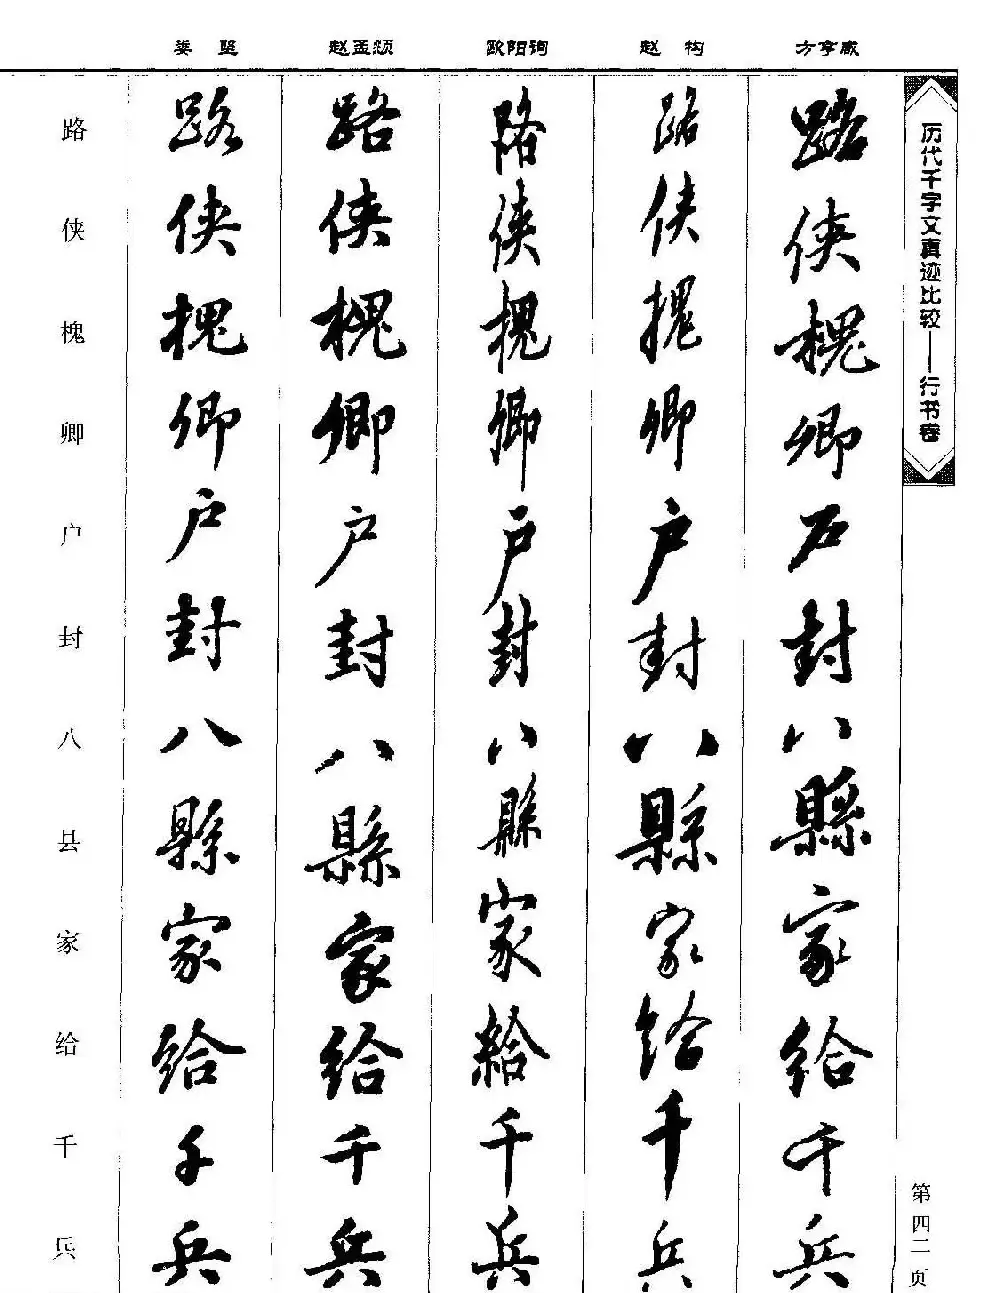 娄 坚 赵孟頫 欧阳询 赵 构 方孝孺
历代千字文真迹比较——行书卷
路 路 路 路 路 路
侠 侠 侠 侠 侠 侠
槐 槐 槐 槐 槐 槐
卿 卿 卿 卿 卿 卿
户 户 户 户 户 户
封 封 封 封 封 封
八 八 八 八 八 八
县 縣 縣 縣 縣 縣
家 家 家 家 家 家
给 給 給 給 給 給
千 千 千 千 千 千
兵 兵 兵 兵 兵 兵
第四二页